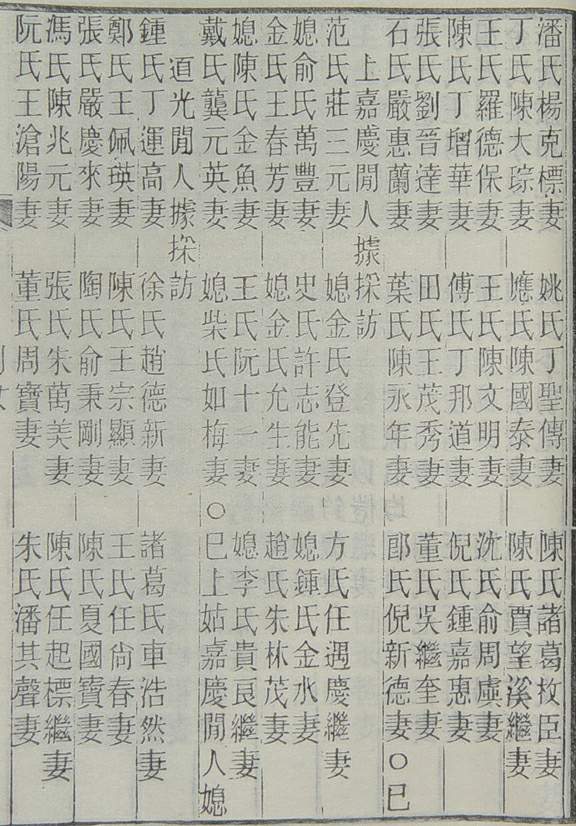 潘氏楊克標妻 姚氏丁聖傳妻 陳氏諸葛枚臣妻
丁氏陳大琮妻 應氏陳國泰妻 陳氏賈望溪繼妻
王氏羅德保妻 王氏陳文明妻 沈氏俞周虞妻
陳氏丁增華妻 傅氏丁邦道妻 倪氏鍾嘉惠妻
張氏劉晉達妻 田氏王茂秀妻 董氏吳繼奎妻
石氏嚴惠蘭妻 葉氏陳永年妻 郎氏倪新德妻○巳
上嘉慶閒人據採訪
范氏莊三元妻 媳金氏登先妻 方氏任遇慶繼妻
媳俞氏萬豐妻 史氏許志能妻 媳鍾氏金水妻
金氏王春芳妻 媳金氏允生妻 趙氏朱林茂妻
媳陳氏金魚妻 王氏阮十一妻 媳李氏貴良繼妻
戴氏龔元英妻 媳柴氏如梅妻○巳上姑嘉慶閒人媳
道光閒人據採訪
鍾氏丁運高妻 徐氏趙德新妻 諸葛氏車浩然妻
鄭氏王佩瑛妻 陳氏王宗顯妻 王氏任尙春妻
張氏嚴慶來妻 陶氏俞秉剛妻 陳氏夏國寶妻
馮氏陳兆元妻 張氏朱萬美妻 陳氏任起標繼妻
阮氏王滄陽妻 董氏周寶妻 朱氏潘其聲妻